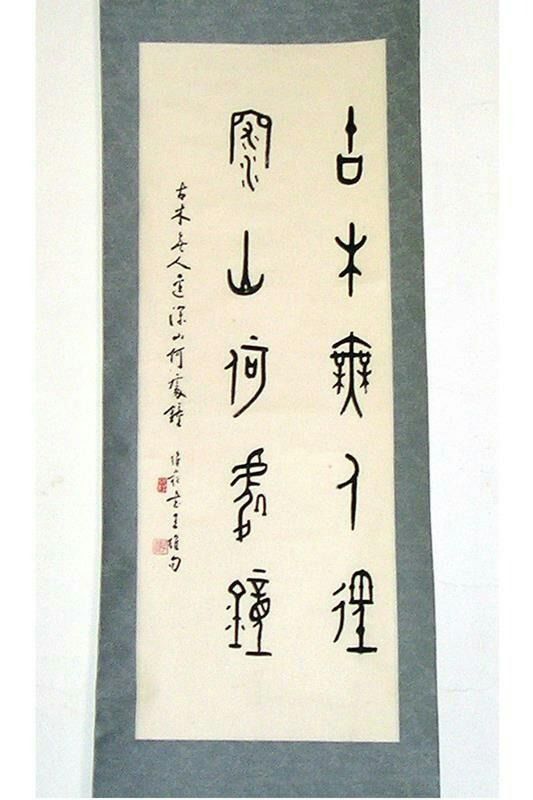 古木無人徑
深山何處鐘
古木無人逕深山何處鐘
書王維句